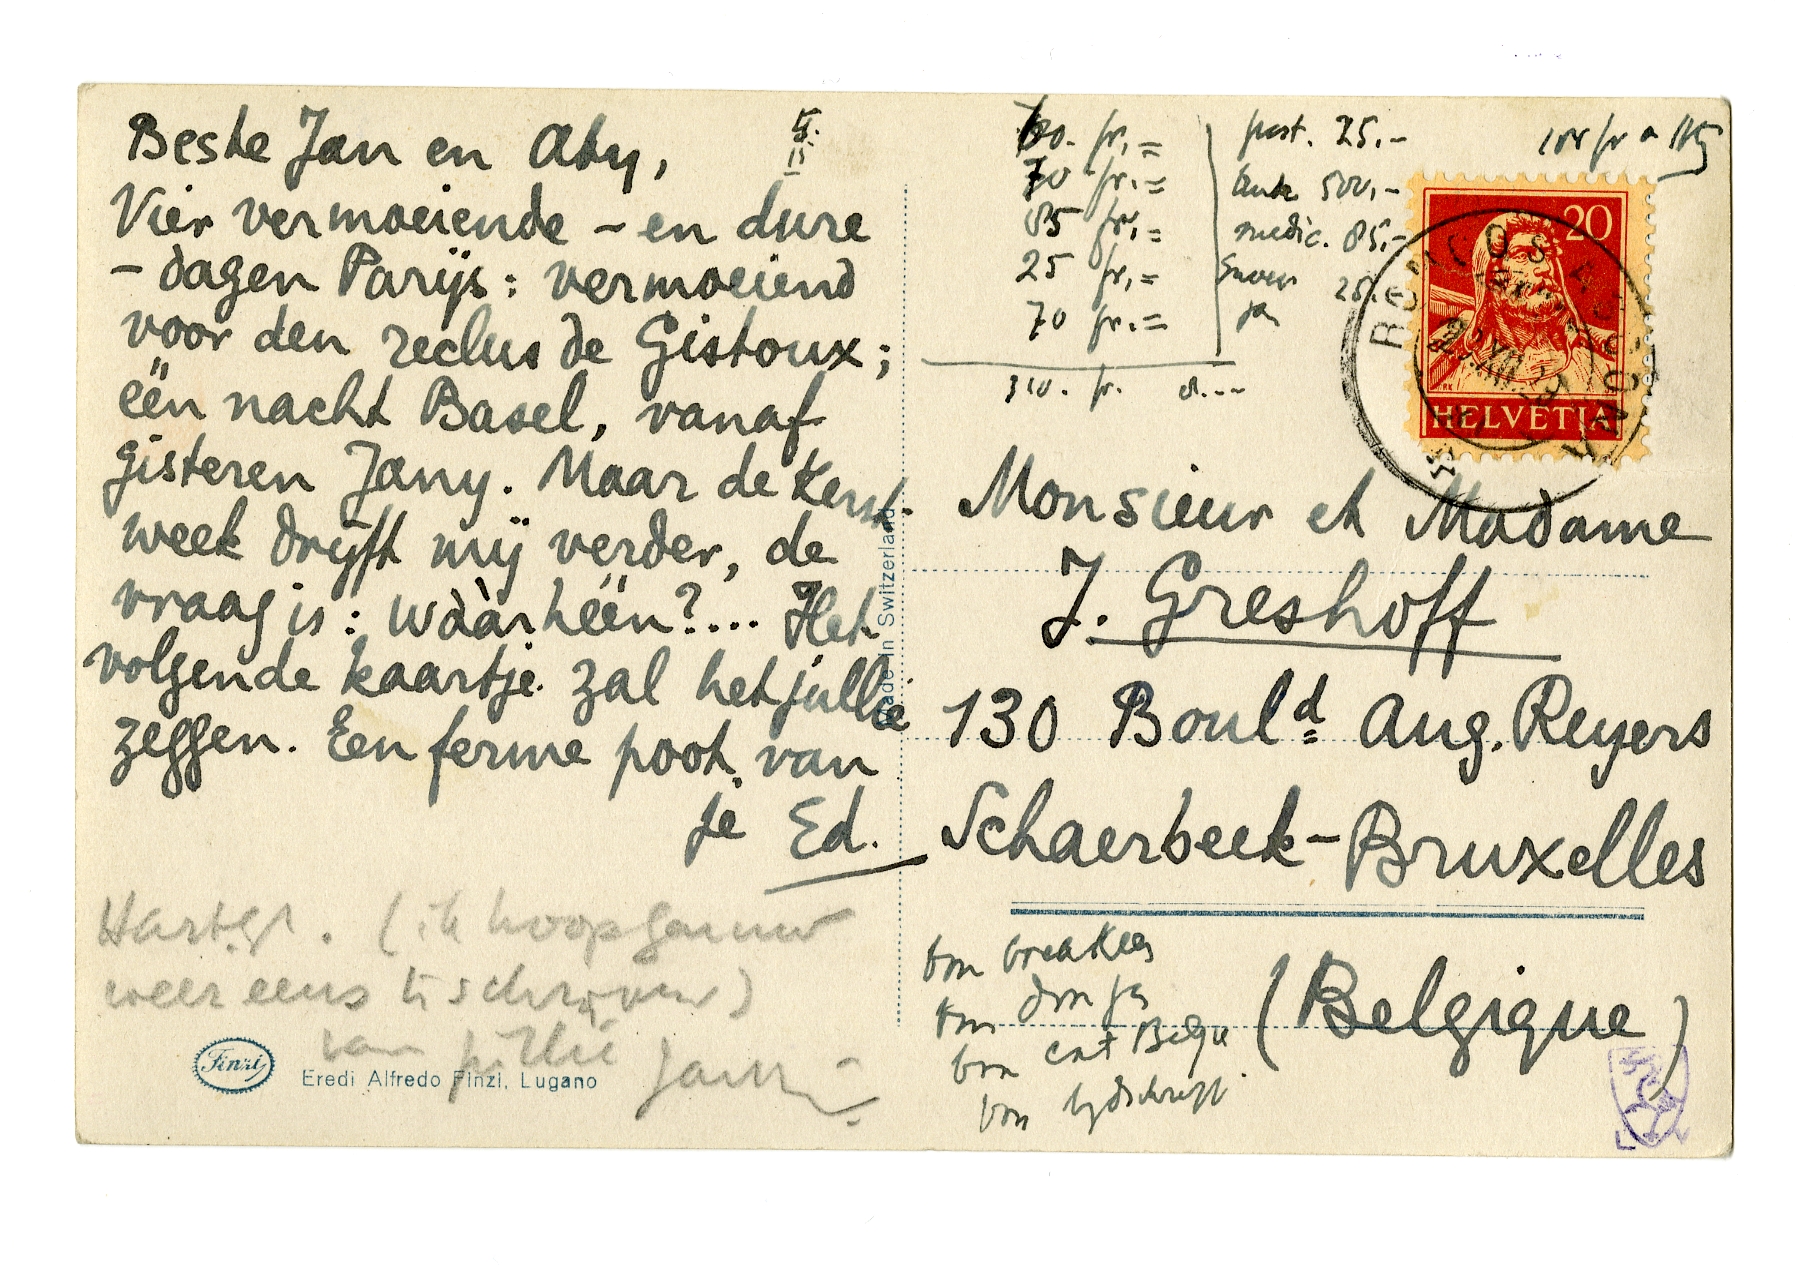 Beste Jan en Aty,
Vier vermoeiende – en dure
– dagen Parijs: vermoeiend
voor den reclus de Gistoux;
één nacht Basel, vanaf
gisteren Jany. Maar de Kerst-
week drijft mij verder, de
vraag is: wààrhéén?... Het
volgende kaartje zal het jullie
zeggen. Een ferme poot van
je Ed.
Hartel. (ik hoop gauw
weer eens te schrijven)
van jullie Jany
Finzi
Eredi Alfredo Finzi, Lugano
Made in Switzerland
60. fr.=
70 fr.=
85 fr.=
25 fr.=
70 fr.=
310. fr.
post. 25.-
500,-
medic. 85,-
25.-
20
HELVETIA
RONCO S. ASCONA
Monsieur et Madame
J. Greshoff
130 Boul.d Aug. Reyers
Schaerbeek-Bruxelles
(Belgique)